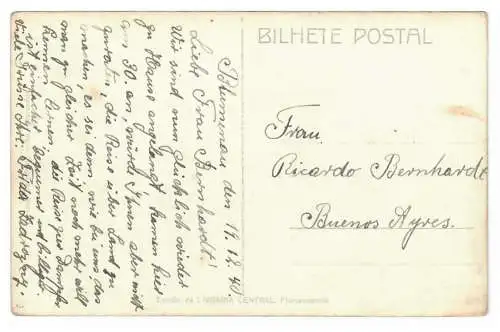 BILHETE POSTAL
Blumenau den 11.12.40.
Liebe Frau Bernhardt!
Wir sind nun glücklich wieder
zu Hause angelangt, kamen hier
am 30. an, würde Ihnen aber nicht
zuraten, die Reise über Land zu
machen, es sei denn, wie bei uns das
man zu gleicher Zeit noch mehr will
kennen lernen, die Reise per Dampfer
ist einfacher bequemer und billiger.
Viele Grüsse Ihre
Frau
Ricardo Bernhardt
Buenos Ayres.
Edição da LIVRARIA CENTRAL, Florianopolis